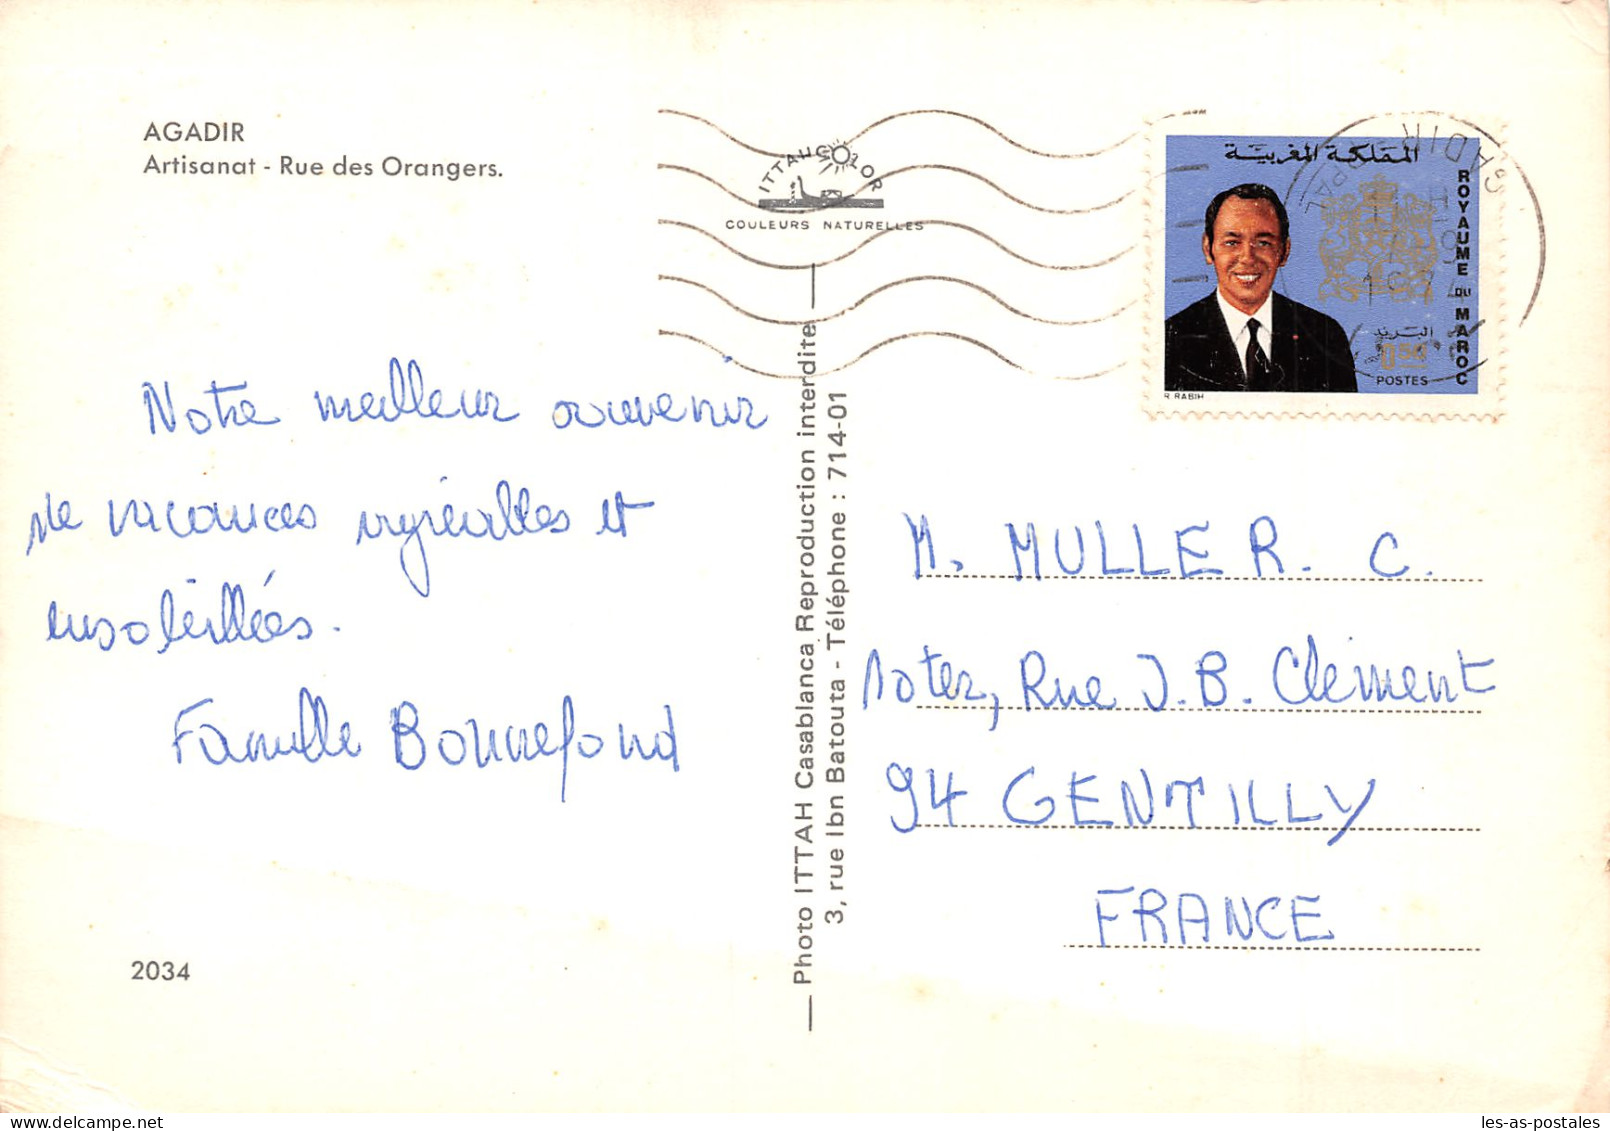 AGADIR
Artisanat - Rue des Orangers.
ITTAHCOLOR
COULEURS NATURELLES
المملكة المغربية
ROYAUME DU MAROC
البريد
0.50
POSTES
R. RABIH
AGADIR
1974
Notre meilleur souvenir
de vacances agréables et
ensoleillées.
Famille Bonnefond
2034
Photo ITTAH Casablanca Reproduction interdite
3, rue Ibn Batouta - Téléphone : 714-01
M. MULLER. C.
Rue J.B. Clément
94 GENTILLY
FRANCE
les-as-postales